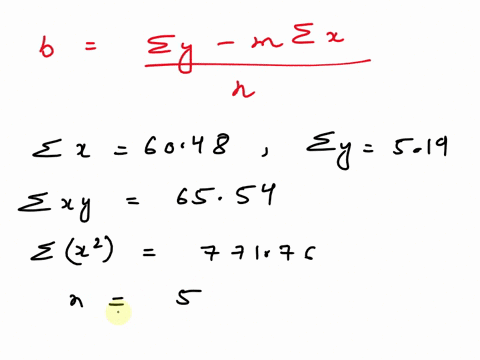 b = Σy - mΣx / n
Σx = 60.48 , Σy = 5.19
Σxy = 65.54
Σ(x²) = 771.76
n = 5